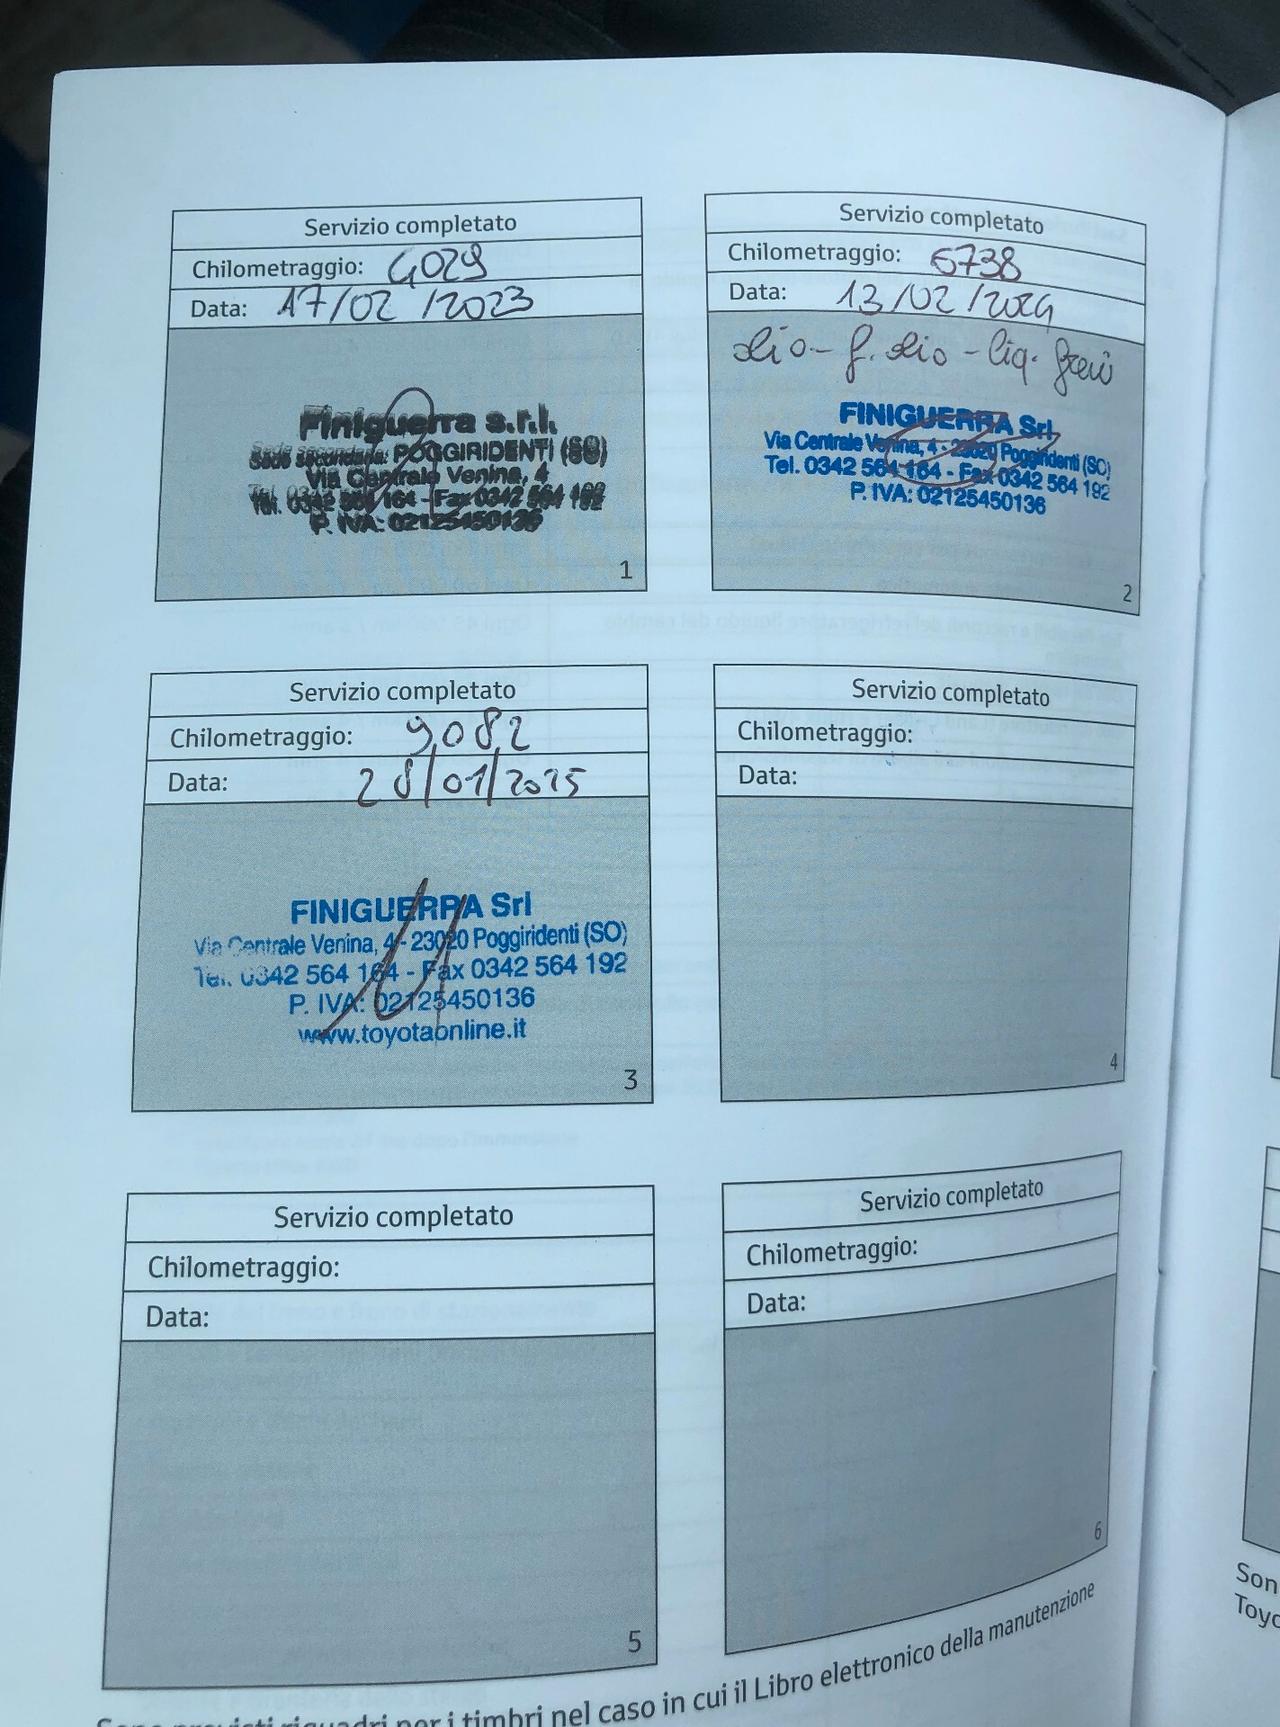 Servizio completato
Chilometraggio: 4029
Data: 17/02/2023
Finiguerra s.r.l.
Sede secondaria: POGGIRIDENTI (SO)
Via Centrale Venina, 4
Tel. 0342 564 164 - Fax 0342 564 192
P. IVA: 02125450136
1
Servizio completato
Chilometraggio: 6738
Data: 13/02/2024
olio - f. olio - liq. freni
FINIGUERRA Srl
Via Centrale Venina, 4 - 23020 Poggiridenti (SO)
Tel. 0342 564 164 - Fax 0342 564 192
P. IVA: 02125450136
2
Servizio completato
Chilometraggio: 9082
Data: 28/01/2025
FINIGUERRA Srl
Via Centrale Venina, 4 - 23020 Poggiridenti (SO)
Tel. 0342 564 164 - Fax 0342 564 192
P. IVA: 02125450136
www.toyotaonline.it
3
Servizio completato
Chilometraggio:
Data:
4
Servizio completato
Chilometraggio:
Data:
5
Servizio completato
Chilometraggio:
Data:
6
Sono previsti riquadri per i timbri nel caso in cui il Libro elettronico della manutenzione
Son
Toyo